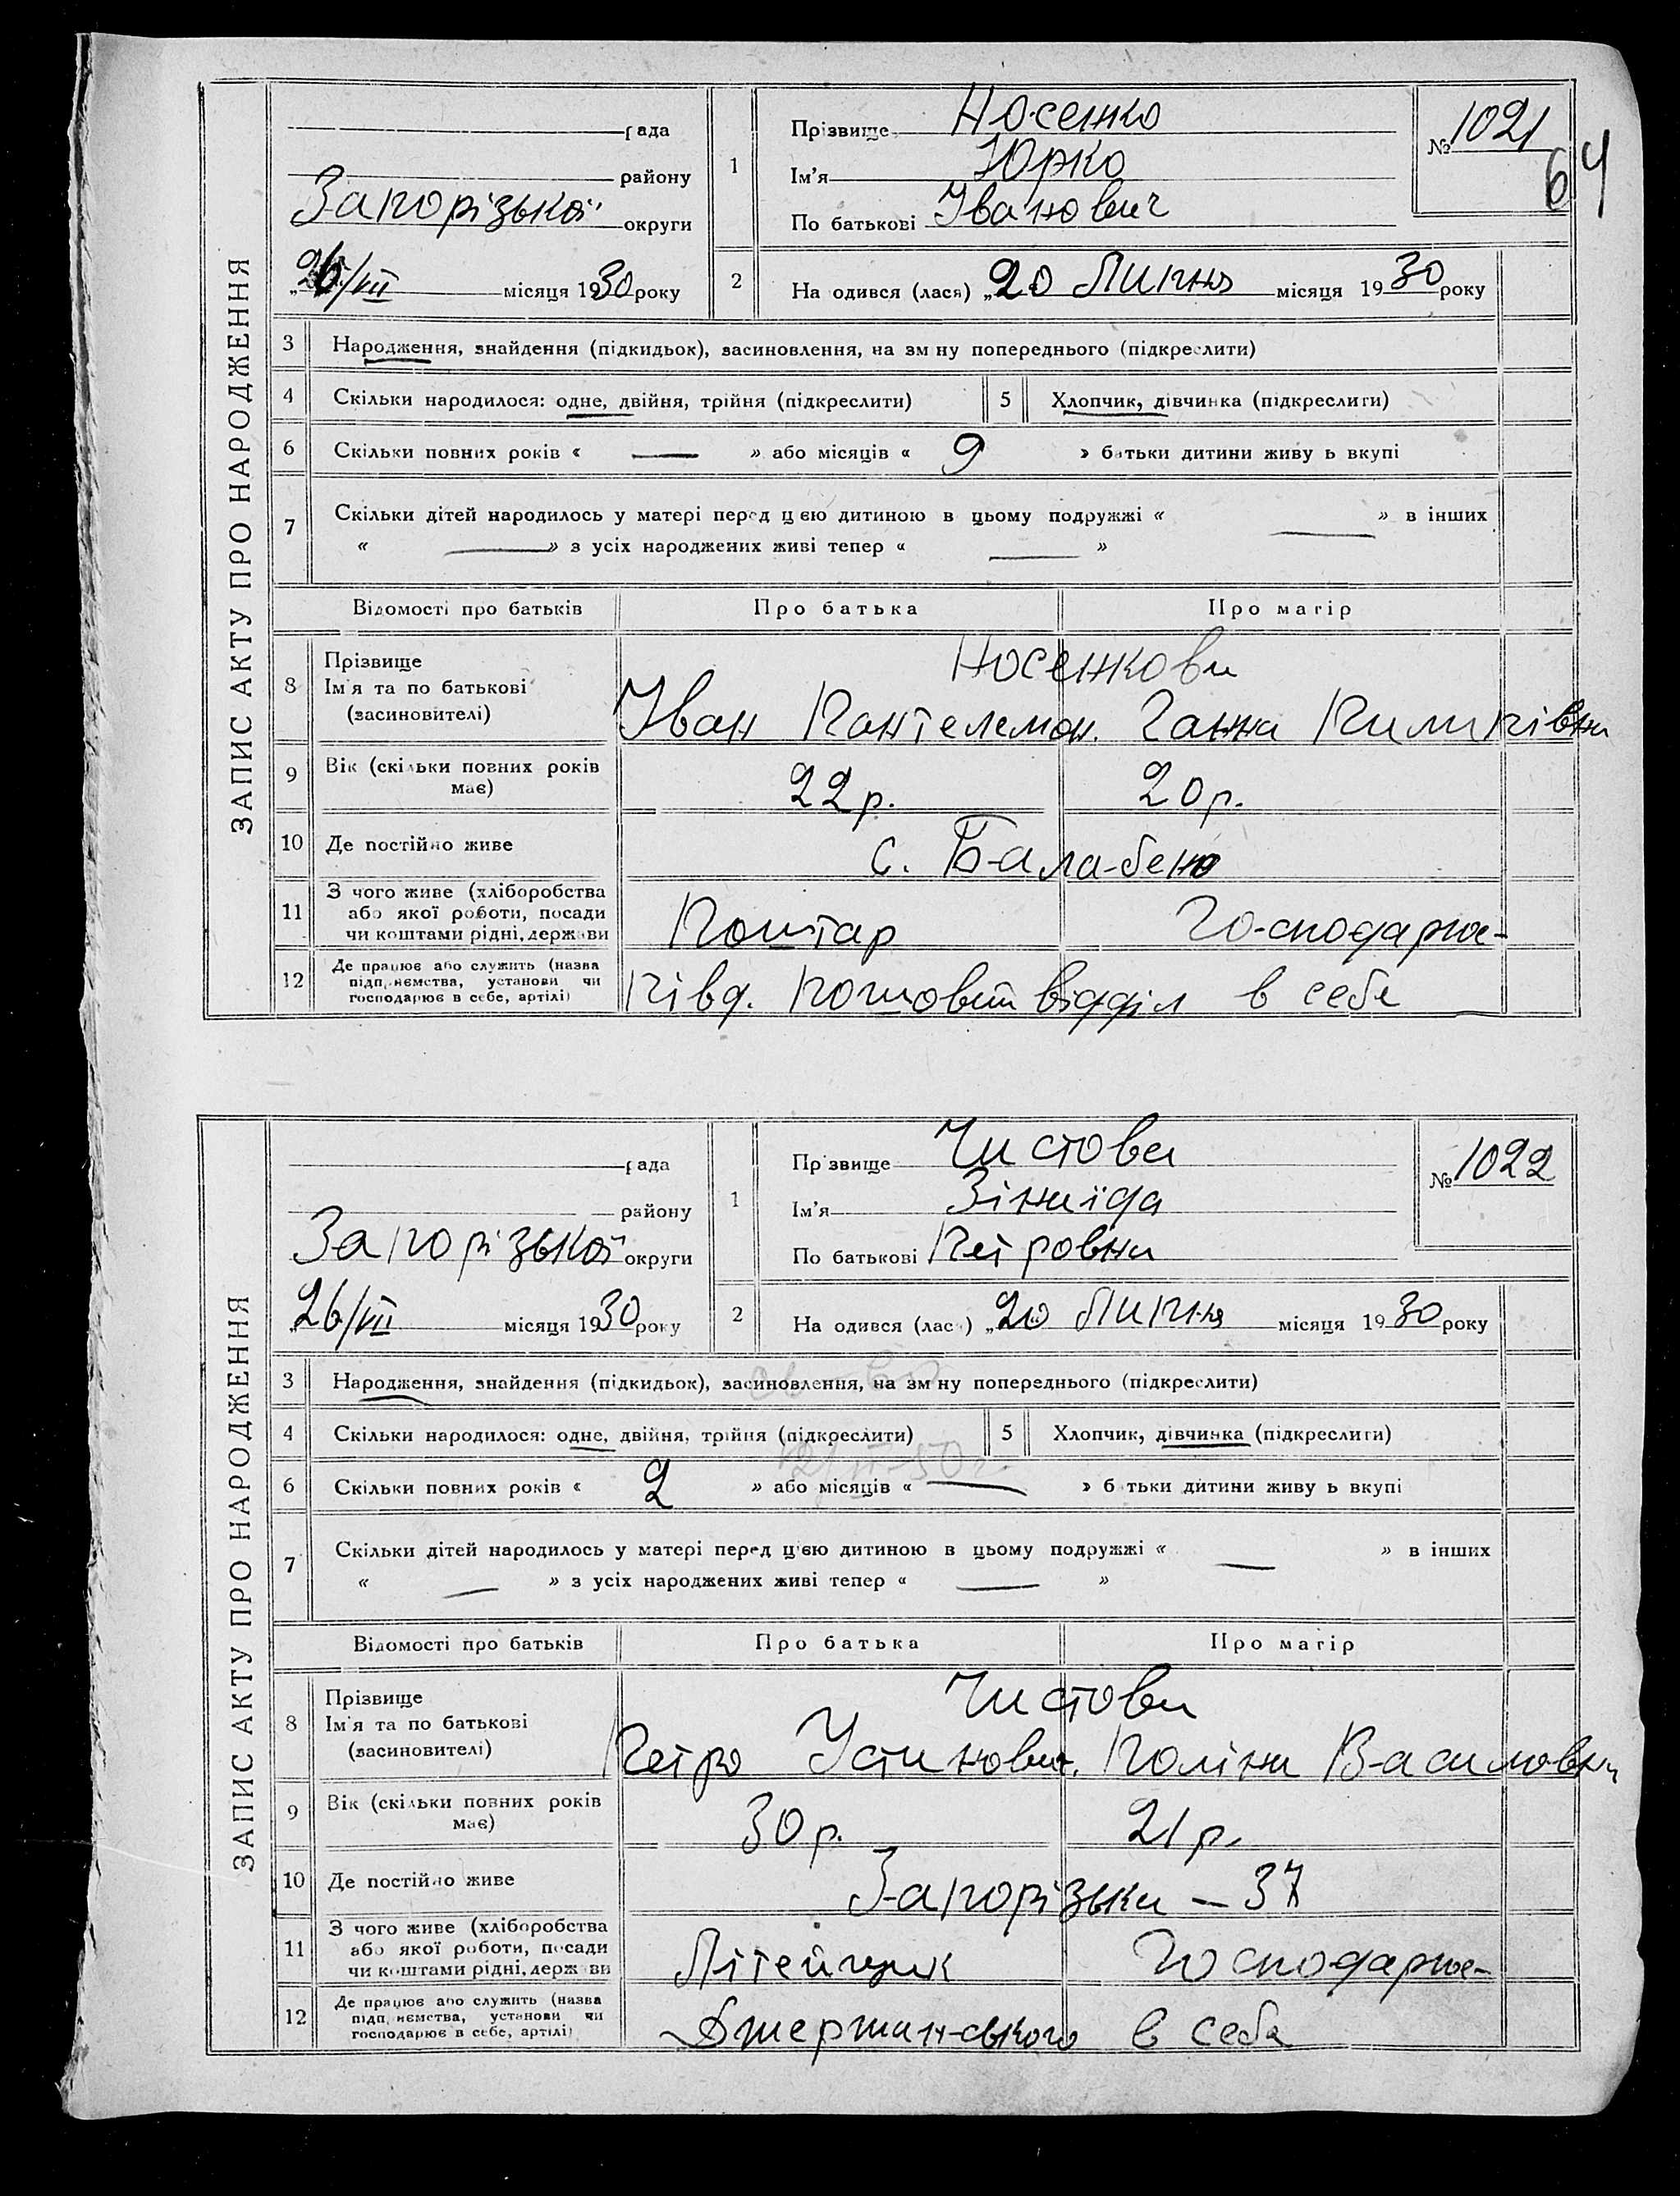 ЗАПИС АКТУ ПРО НАРОДЖЕННЯ
рада
району
Запорізької округи
26/VII місяця 1930 року
1
Прізвище Носенко
Ім'я Юрко
По батькові Іванович
№ 1021
64
2 На одився (лася) „20 Липня місяця 1930 року
3 Народження, знайдення (підкидьок), засиновлення, на зм ну попереднього (підкреслити)
4 Скільки народилося: одне, двійня, трійня (підкреслити) 5 Хлопчик, дівчинка (підкреслити)
6 Скільки повних років « — » або місяців « 9 » батьки дитини живу ь вкупі
7 Скільки дітей народилось у матері перед цією дитиною в цьому подружжі « — » в інших
« — » з усіх народжених живі тепер « — »
Відомості про батьків Про батька Про матір
8 Прізвище
Ім'я та по батькові
(засиновителі)
Носенкови
Іван Пантелемон. Ганна
9 Вік (скільки повних років має) 22 р. 20 р.
10 Де постійно живе с. Бала-
11 З чого живе (хліборобства
або якої роботи, посади
чи коштами рідні, держави
Поштар Господарює-
12 Де працює або служить (назва
підприємства, установи чи
господарює в себе, артілі)
Півд. Поштовий відділ в себе
ЗАПИС АКТУ ПРО НАРОДЖЕННЯ
рада
району
Запорізької округи
„26/VII місяця 1930 року
1
Пр звище Чистова
Ім'я Зінаїда
По батькові Петровна
№ 1022
2 На одився (лас ) „20 Липня місяця 1930 року
3 Народження, знайдення (підкидьок), засиновлення, на зм ну попереднього (підкреслити)
4 Скільки народилося: одне, двійня, трійня (підкреслити) 5 Хлопчик, дівчинка (підкреслити)
6 Скільки повних років « 2 » або місяців « — » б тьки дитини живу ь вкупі
7 Скільки дітей народилось у матері перед цією дитиною в цьому подружжі « — » в інших
« — » з усіх народжених живі тепер « — »
Відомості про батьків Про батька Про матір
8 Прізвище
Ім'я та по батькові
(засиновителі)
Чистови
Петро Устинович. Поліна Василовна
9 Вік (скільки повних років має) 30 р. 21 р.
10 Де постійно живе Запорізьки – 37
11 З чого живе (хліборобства
або якої роботи, посади
чи коштами рідні, держави
Літейщик Господарює-
12 Де працює або служить (назва
підприємства, установи чи
господарює в себе, артілі)
в себе